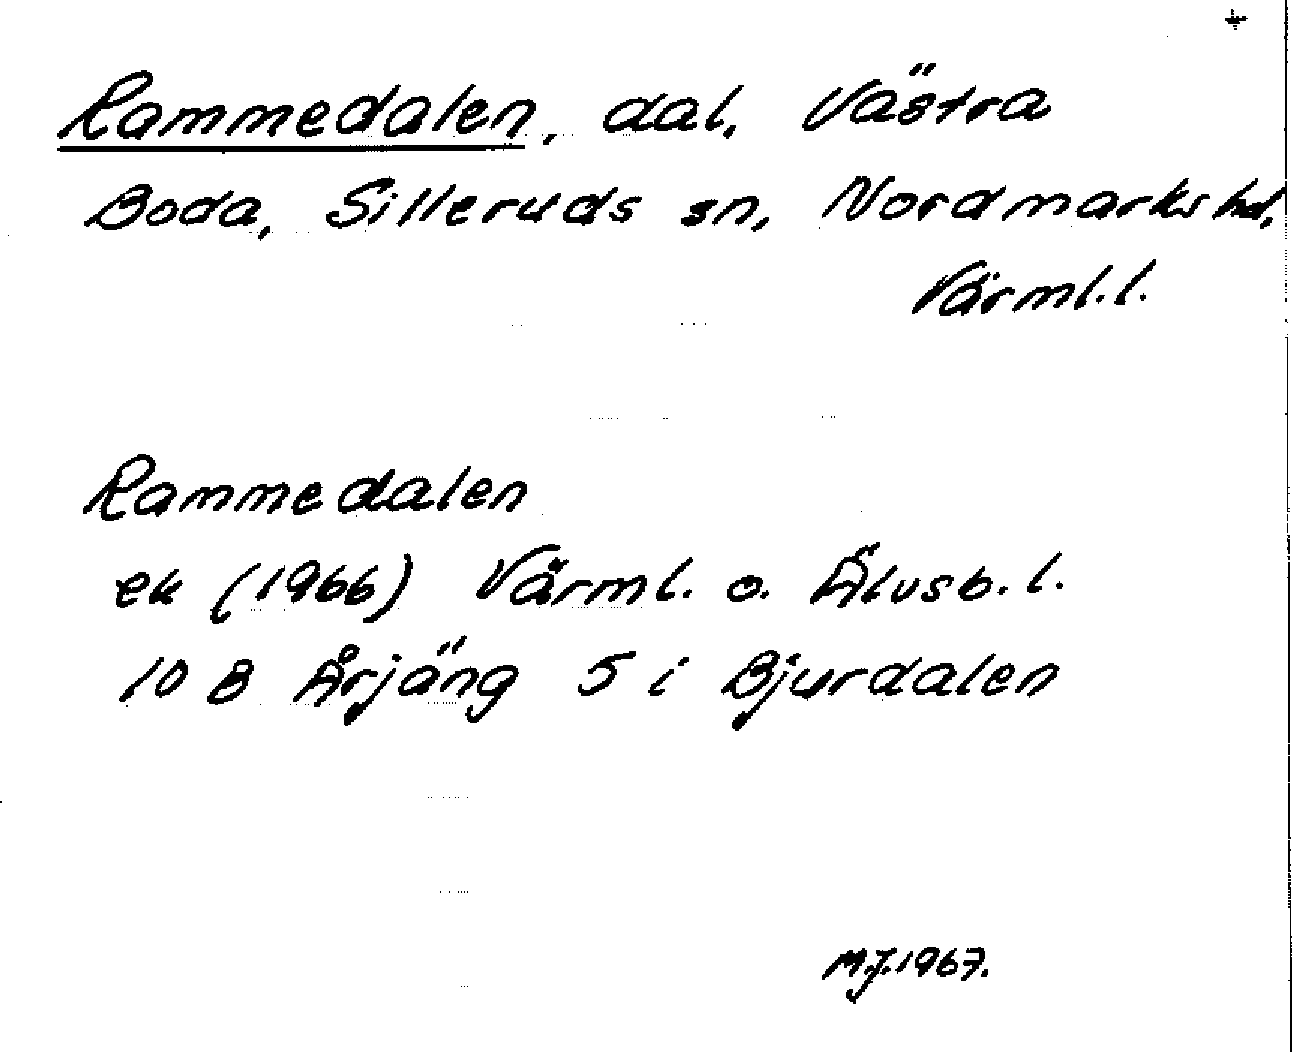 Rammedalen, dal, Västra
Boda, Silleruds sn, Nordmarks hd,
Värml. l.
Rammedalen
ek (1966) Värml. o. Älvsb. l.
10 B Årjäng 5 i Bjurdalen
M.J. 1967.